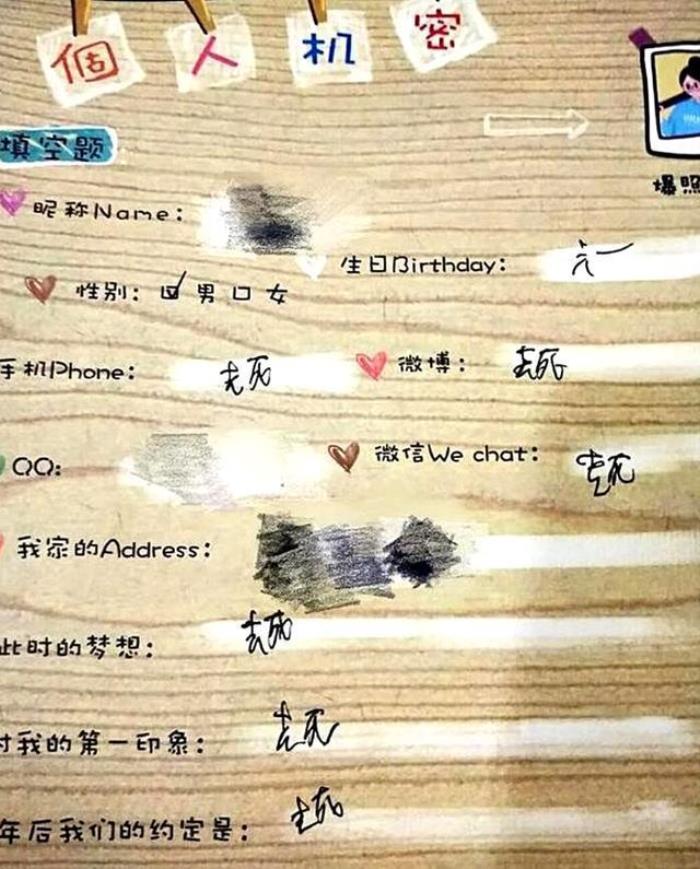 個人机密
填空题
爆照
昵称Name：
生日Birthday：
性别：☑男 口女
手机Phone：去死
微博：去死
QQ：
微信We chat：去死
我家的Address：
此时的梦想：去死
对我的第一印象：去死
年后我们的约定是：去死